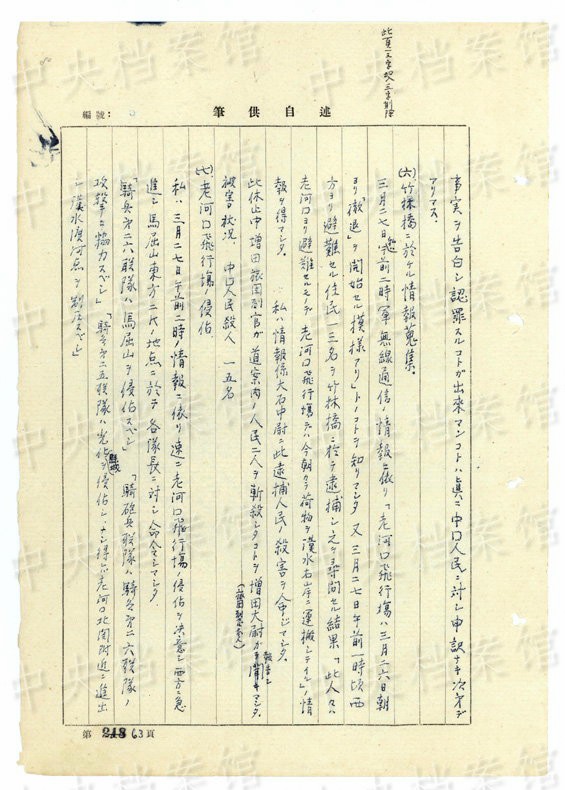 此頁一文字改 三字削除
述自供筆
編號:
事実ヲ告白シ認罪スルコトガ出来マシタコトハ眞ニ中国人民ニ対シ申訳ナキ次第デ
アリマス。
(六)竹林橋ニ於ケル情報蒐集。
三月二七日午前二時軍無線通信ノ情報ニ依リ「老河口飛行場ハ三月二六日朝
ヨリ「撤退」ヲ開始セル模様アリ」トノコトヲ知リマシタ 又三月二七日午前一時頃西
方ヨリ避難セル住民一三名ヲ竹林橋ニ於テ逮捕シ之ヲ尋問セル結果「此人々ハ
老河口ヨリ避難セルモノデ 老河口飛行場デハ今朝カラ荷物ヲ漢水右岸ニ運搬シテイル」ノ情
報ヲ得マシタ。 私ハ情報係大石中尉ニ此逮捕人民ノ殺害ヲ命ジマシタ。
此休止中増田旅団副官ガ道案内ノ人民二人ヲ斬殺シタコトヲ増田大尉ガ報告シ聞キマシタ。
被害状況 中国人民殺人 一五名
(七)老河口飛行場ノ侵佔
私ハ三月二七日午前二時ノ情報ニ依リ速ニ老河口飛行場ノ侵佔ヲ決意シ西方ニ急
進シ馬屈山東方二粁ノ地点ニ於テ各隊長ニ対シ命令シマシタ。
「騎兵第二六聯隊ハ馬屈山ヲ侵佔スベシ」 「騎砲兵聯隊ハ騎兵第二六聯隊ノ
攻撃ニ協力スベシ」 「騎兵第二五聯隊ハ光化縣城ヲ侵佔シ ナシ得レバ老河口北関附近ニ進出
シ漢水渡河点ヲ制圧スベシ」
第 218 63 頁
中央档案馆